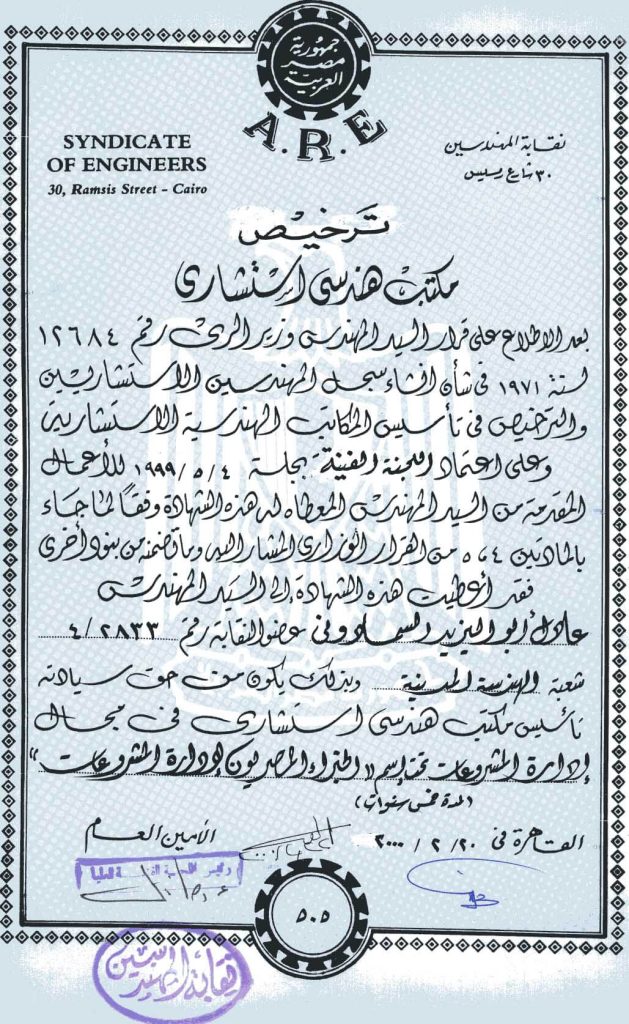 جمهورية
مصر
العربية
A.R.E
SYNDICATE
OF ENGINEERS
30, Ramsis Street - Cairo
نقابة المهندسين
٣٠ شارع رمسيس
ترخيص
مكتب هندسى إستشارى
بعد الاطلاع على قرار السيد المهندس وزير الرى رقم ١٢٦٨٤
لسنة ١٩٧١ فى شأن انشاء سجل المهندسين الاستشاريين
والترخيص فى تأسيس المكاتب الهندسية الاستشارية
وعلى اعتماد اللجنة الفنية بجلسة ١٩٩٩/٥/٤ للأعمال
المقدمة من السيد المهندس المعطاه له هذه الشهادة وفقاً لما جاء
بالمادتين ٥،٤ من القرار الوزارى المشار إليه وما تضمنه من بنود أخرى
فقد أعطيت هذه الشهادة إلى السيد المهندس
عادل أبو اليزيد السماودنى عضو النقابة رقم ٤/٢٨٣٣
شعبة الهندسة المدنية وبذلك يكون من حق سيادته
تأسيس مكتب هندسى استشارى فى مجال
إدارة المشروعات تحت إسم "الخبراء المصريون لإدارة المشروعات"
(لمدة خمس سنوات)
القاهرة فى ٢٠ / ٢ / ٢٠٠٠
الأمين العام
٥٠٥
نقابة المهندسين